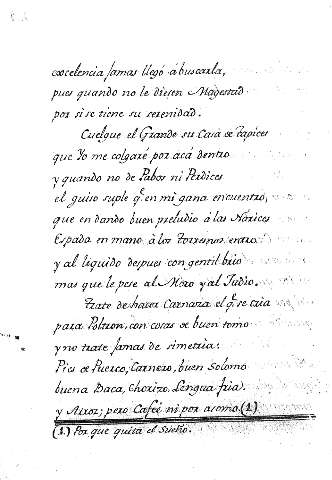 excelencia Jamas llegó á buscarla,
pues quando no le diesen Magestad
por si se tiene su serenidad.
Cuelgue el Grande su Casa de tapices
que Yo me colgaré por acá dentro
y quando no de Pabos ni Perdices
el guiso suple q.e en mi gana encuentro,
que en dando buen preludio á las Narices
Espada en mano á los torreznos entro
y al liquido despues con gentil brio
mas que le pese al Moro y al Judio.
Trate de hacer Carnaza el q.e se cria
para Poltron, con cosas de buen tomo
y no trate Jamas de simetria:
Pies de Puerco, Carnero, buen Solomo
buena Baca, Chorizo, Lengua fria
y Arroz; pero Cafeé ni por asomo. (1)
(1.) Por que quita el Sueño.